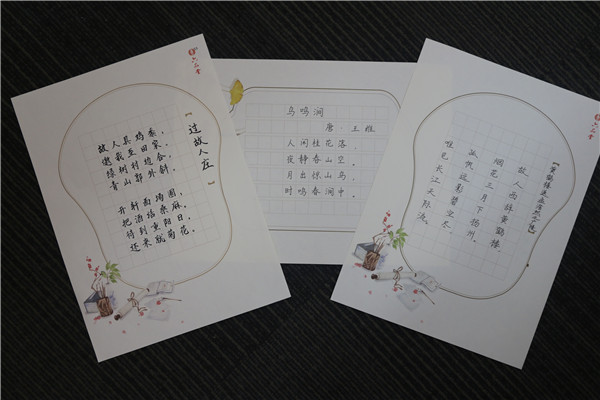 六品堂
【过故人庄】
故人具鸡黍，
邀我至田家，
绿树村边合，
青山郭外斜。
开轩面场圃，
把酒话桑麻。
待到重阳日，
还来就菊花。
鸟鸣涧
唐·王维
人闲桂花落，
夜静春山空。
月出惊山鸟，
时鸣春涧中。
六品堂
【黄鹤楼送孟浩然之广陵】
故人西辞黄鹤楼，
烟花三月下扬州。
孤帆远影碧空尽，
唯见长江天际流。